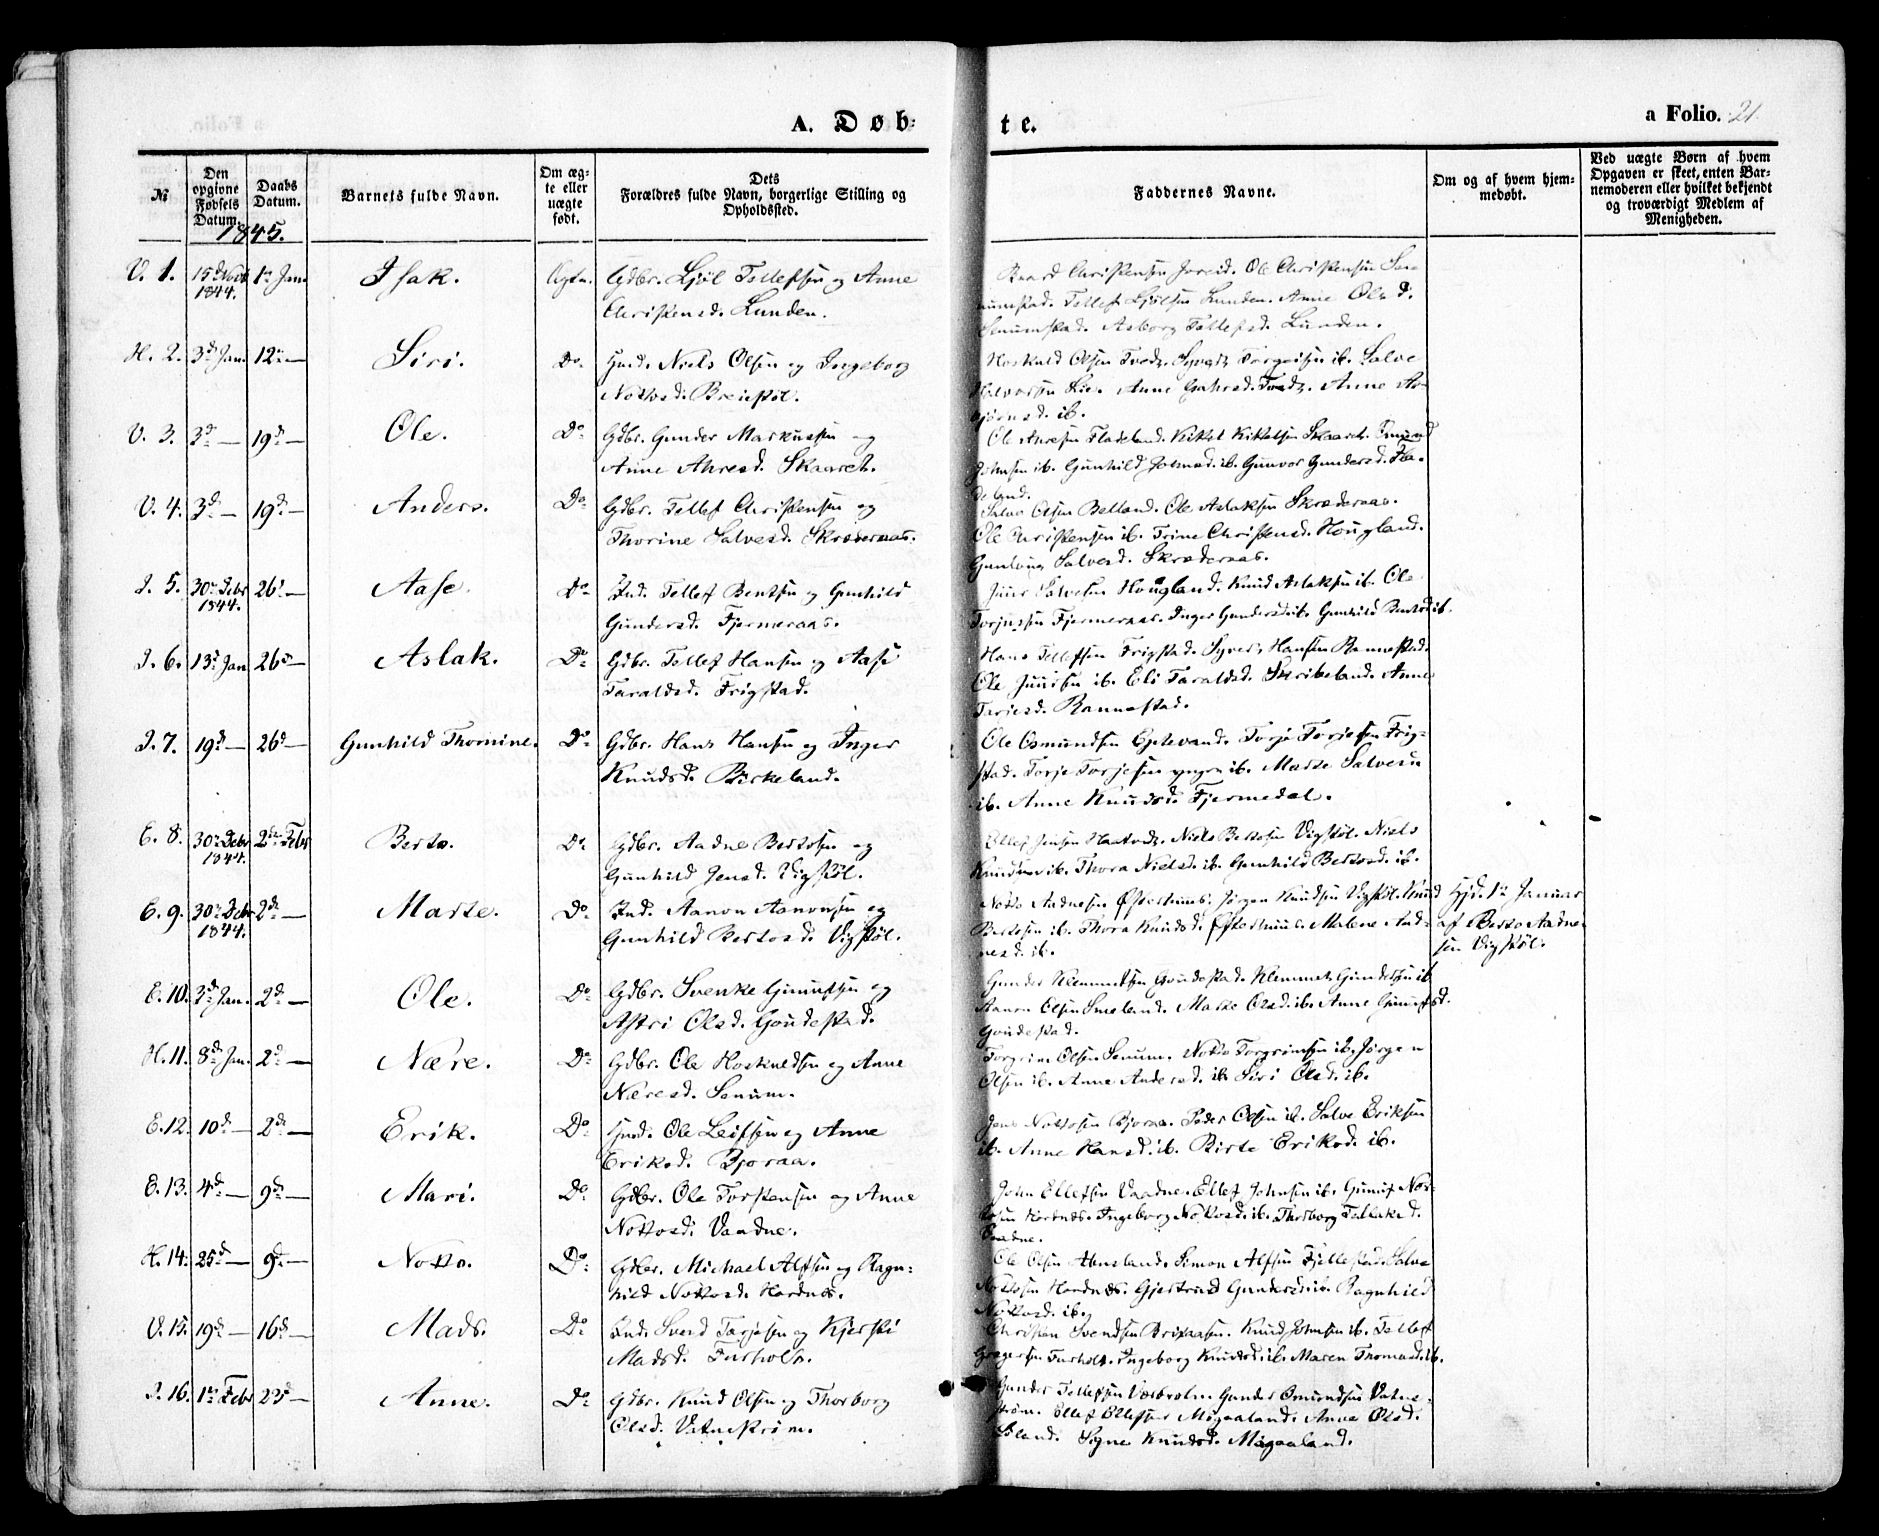 A. Døb-
te.
a Folio. 21.
№
Den
opgivne
Fødsels
Datum.
Daabs
Datum.
Barnets fulde Navn.
Om æg-
te eller
uægte
født.
Dets
Forældres fulde Navn, borgerlige Stilling og
Opholdssted.
Faddernes Navne.
Om og af hvem hjem-
medøbt.
Ved uægte Børn af hvem
Opgaven er skeet, enten Bar-
nemoderen eller hvilket bekjendt
og troværdigt Medlem af
Menigheden.
1845.
V. 1. 15d Novb 1844. 1ste Jan. Isak. Ægte. Gdbr. Ljøl Tellefsen og Anne
Christensd. Lunden.
Baard Christensen Joreid. Ole Christensen Se-
numstad. Tellef Ljølsen Lunden. Anne Olsd.
Senumstad. Asborg Tellefsd. Lunden.
H. 2. 3d Jan. 12te — Siri. Do. Huusm. Niels Olsen og Ingeborg
Nottosd. Breistøl.
Hoskuld Olsen Tvedt. Syvert Torgeisen ib. Salve
Halvorsen Lie. Anne Gahrsd. Tvedt. Anne As-
bjørnsd. ib.
V. 3. 3d — 19d — Ole. Do. Gdbr. Gunder Markussen og
Anne Ahresd. Skaaret.
Ole Ahresen Fladeland. Kittel Kittelsen Skaaret. Omund
Johnsen ib. Gunhild Johnsd. ib. Gunvor Gundersd. Fla-
deland.
V. 4. 3d — 19d — Anders. Do. Gdbr. Tellef Christensen og
Thorine Salvesd. Skrøderaas.
Salve Olsen Belland. Ole Aslaksen Skræderaas.
Ole Christensen ib. Trine Christensd. Hougland.
Gunloug Salvesd. Skræderaas.
I. 5. 30te Debr 1844. 26d — Aase. Do. Ind. Tellef Bentsen og Gunhild
Gundersd. Fjermeraas.
Juur Salvesen Hougland. Knud Aslaksen ib. Ole
Torjussen Fjermeraas. Inger Gundersd. ib. Gunhild Bentsd. ib.
I. 6. 13d Jan 26d — Aslak. Do. Gdbr. Tellef Hansen og Aase
Taraldsd. Frigstad.
Hans Tellefsen Frigstad. Syvert Hansen Rannestad.
Ole Juursen ib. Eli Taraldsd. Skribeland. Anne
Terjesd. Rannestad.
I. 7. 19d — 26d — Gunhild Thomine. Do. Gdbr. Hans Hansen og Inger
Knudsd. Birkeland.
Ole Osmundsen Eptevand. Torje Torjesen Frig-
stad. Torje Torjesen yngre ib. Marte Salvesd.
ib. Anne Knudsd. Fjermedal.
E. 8. 30te Debr 1844. 2den Febr Berte. Do. Gdbr. Aadne Bertosen og
Gunhild Jensd. Vigstøl.
Ellef Jensen Haatvedt. Niels Bertosen Vigstøl. Niels
Knudsen ib. Thora Nielsd. ib. Gunhild Bertosd. ib.
E. 9. 30te Debr 1844. 2de — Marte. Do. Ind. Aanon Aanonsen og
Gunhild Bertosd. Vigstøl.
Notto Aadnesen Østerhuus. Jørgen Knudsen Vigstøl. Knud
Bertosen ib. Thora Knudsd. Østerhuus. Malene Aad-
nesd. ib.
Hjd. 1te Januar
af Berto Aadne-
sen Vigstøl.
E. 10. 3d Jan. 2d — Ole. Do. Gdbr. Svenke Gunufsen og
Astri Olsd. Goudestad.
Gunder Klemmetsen Goudestad. Klemmet Gundersen ib.
Aanon Olsen Smeland. Marte Olsd. ib. Anne Gunufsd.
Goudestad.
H. 11. 8d Jan. 2d — Nære. Do. Gdbr. Ole Hoskuldsen og Anne
Næresd. Senum.
Torgrim Olsen Senum. Notto Torgrimsen ib. Jørgen
Olsen ib. Anne Andersd. ib. Siri Olsd. ib.
E. 12. 10d — 2de — Erik. Do. Huusm. Ole Leifsen og Anne
Eriksd. Bjoraa.
Jens Nottosen Bjoraa. Peder Olsen ib. Salve Eriksen
ib. Anne Hansd. ib. Birte Eriksd. ib.
E. 13. 4d — 9d — Mari. Do. Gdbr. Ole Torstensen og Anne
Nottosd. Vaadne.
John Ellefsen Vaadne. Ellef Johnsen ib. Gunuf Not-
tosen Hordnes. Ingeborg Nottosd. ib. Thorborg Tellaksd.
Vaadne.
H. 14. 25d — 9d — Notto. Do. Gdbr. Michael Alfsen og Ragn-
hild Nottosd. Hordnes.
Ole Olsen Abusland. Simon Alfsen Fjellestad. Salve
Nottosen Hordnes. Gjertrud Gundersd. ib. Ragnhild
Nottosd. ib.
V. 15. 19d — 16d — Mads. Do. Ind. Svend Tarjesen og Kjersti
Madsd. Furholt.
Christen Svendsen Brixaasen. Knud Johnsen ib. Tellef
Gregersen Furholt. Ingeborg Knudsd. ib. Maren Thomasd. ib.
I. 16. 1te Febr 23d — Anne. Do. Gdbr. Knud Olsen og Thorborg
Olsd. Vatnestrøm.
Gunder Tellefsen Vatnestrøm. Gunder Omundsen Vatne-
strøm. Ellef Ellefsen Mygaaland. Anne Olsd.
Island. Signe Knudsd. Mygaaland.